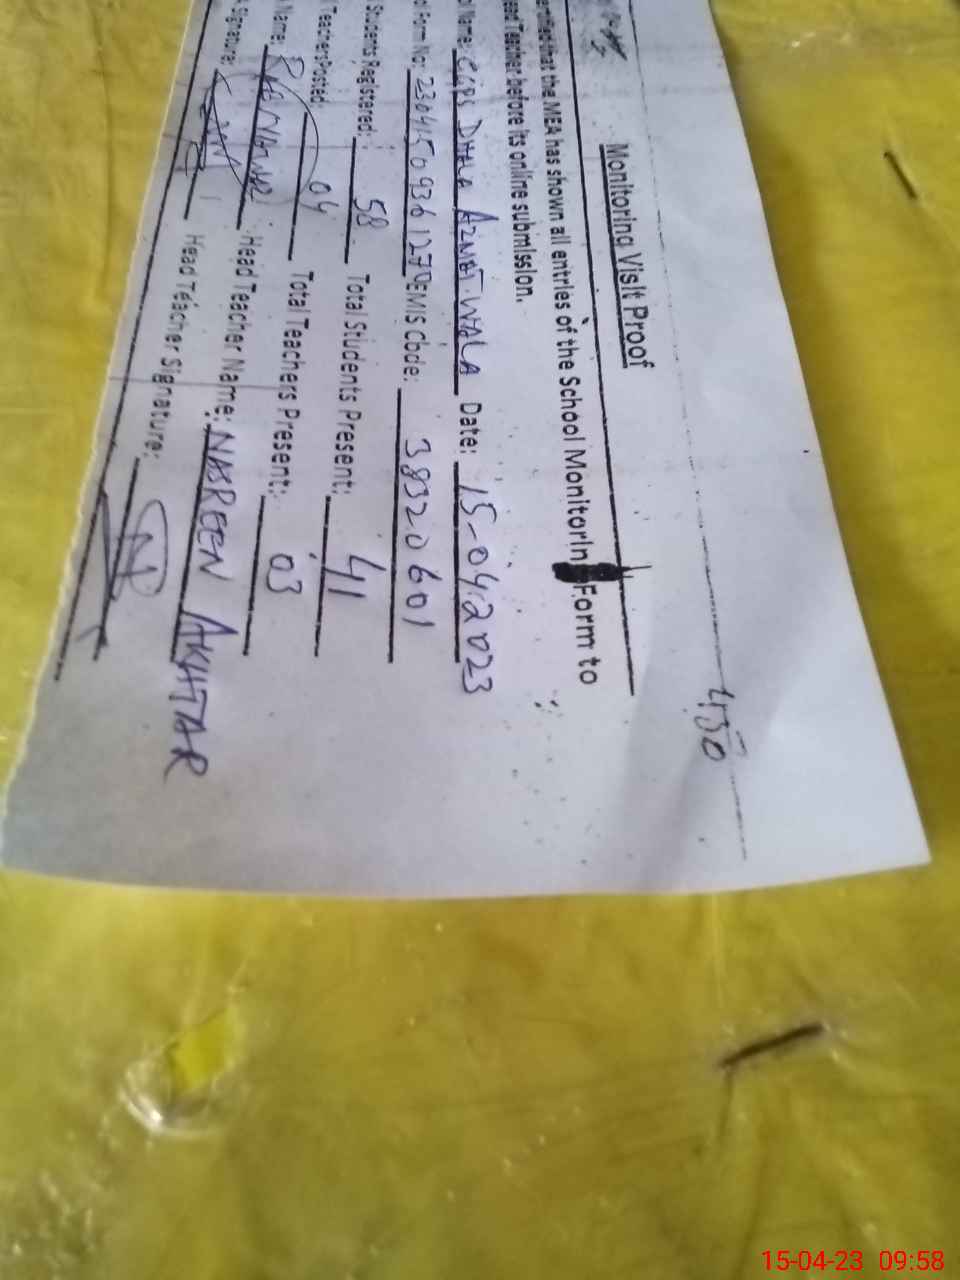 430
Monitoring Visit Proof
that the MEA has shown all entries of the School Monitorin Form to
Teacher before its online submission.
Name: GGPS DHALA AZMAT WALA Date: 15-04-2023
Form No: 230415093612 EMIS Code: 38320601
Students Registered: 58 Total Students Present: 41
Teachers Posted: 04 Total Teachers Present: 03
Name: Head Teacher Name: NASREEN AKHTAR
Signature: Head Teacher Signature:
15-04-23 09:58